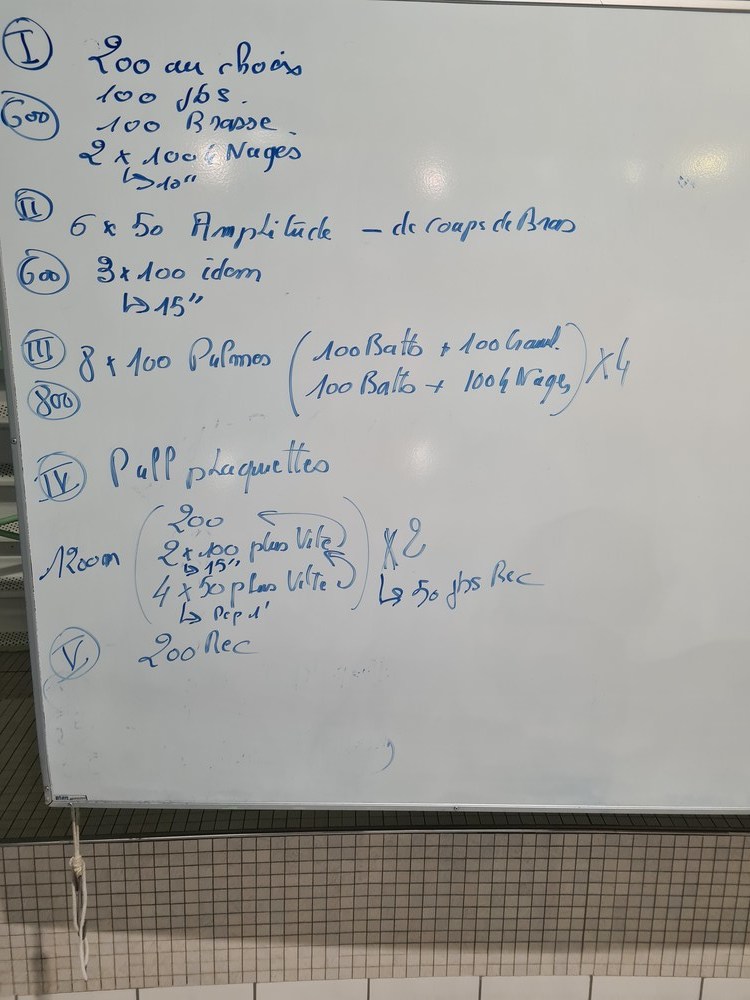 I 200 au choix
100 jbs.
600 100 Brasse.
2 x 100 4 Nages
↳ 10"
II 6 x 50 Amplitude – de coups de Bras
600 3 x 100 idem
↳ 15"
III 8 x 100 Palmes (100 Batts + 100 Crawl.
800 100 Batts + 100 4 Nages) x 4
IV Pull plaquettes
1200m (200
2 x 100 plus Vite
↳ 15"
4 x 50 plus Vite) x 2
↳ Dep 1' ↳ 50 jbs Rec
V 200 Rec